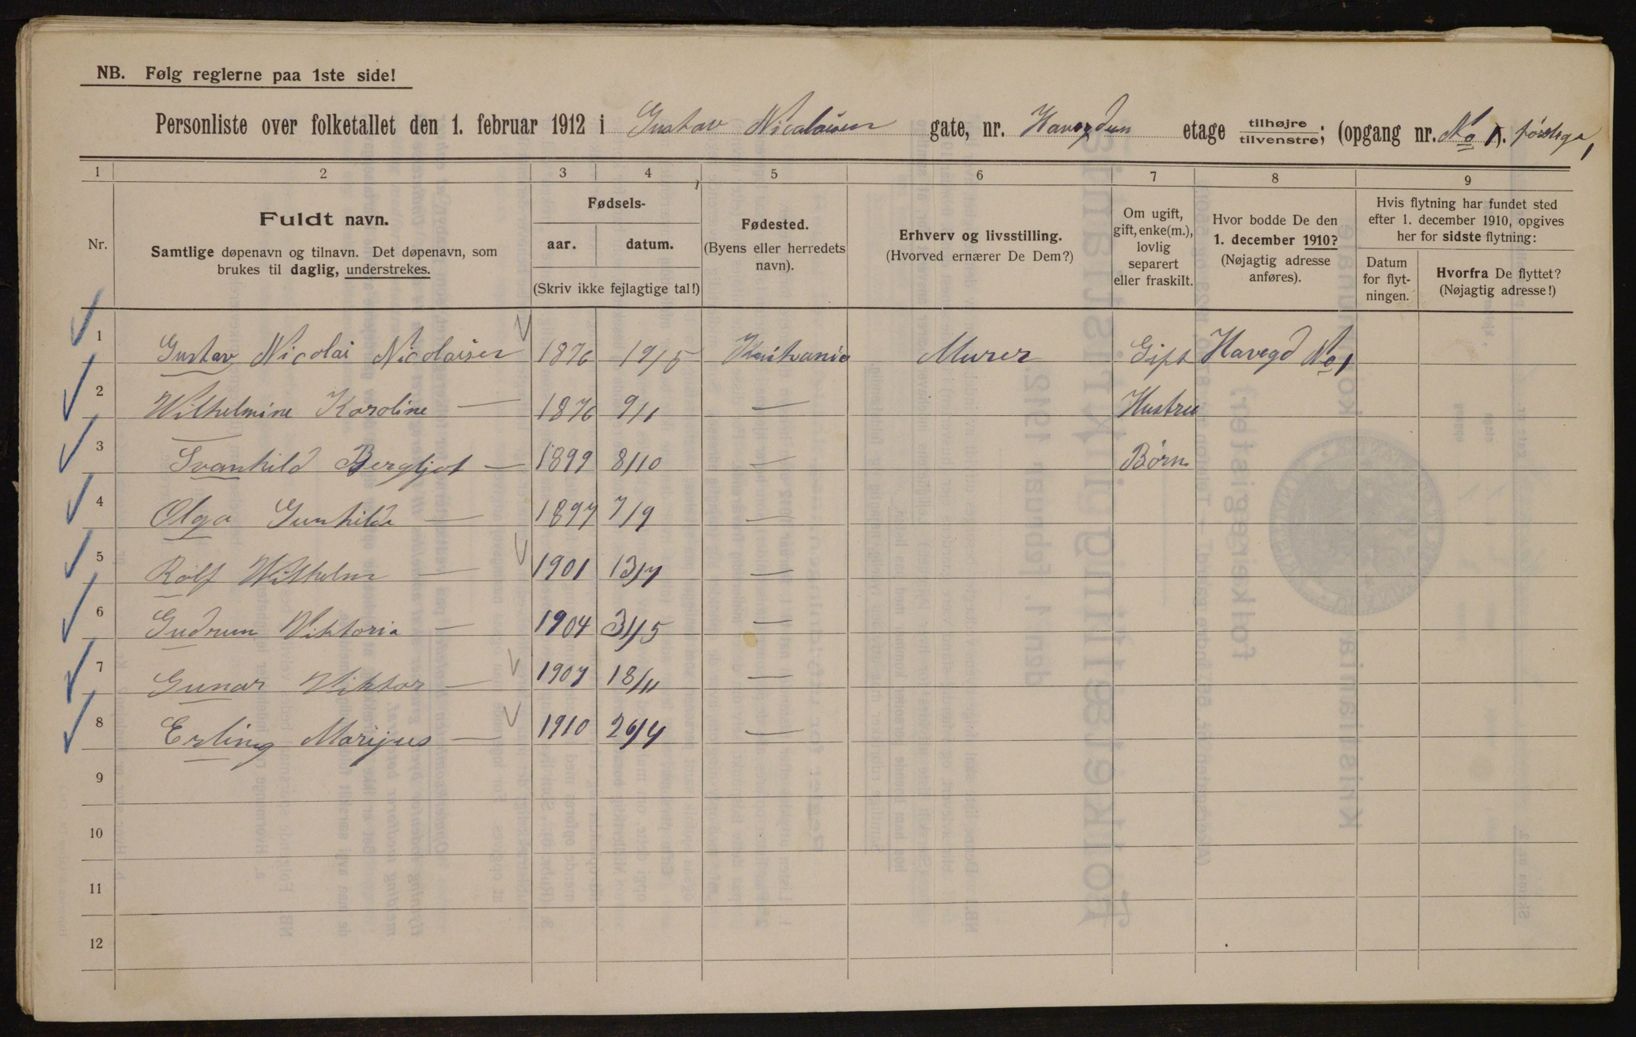 NB. Følg reglerne paa 1ste side!
Personliste over folketallet den 1. februar 1912 i Gustav Nicolaisen gate, nr. etage tilhøjre tilvenstre; (opgang nr. No 1).
1 2 3 4 5 6 7 8 9
Nr.
Fuldt navn.
Samtlige døpenavn og tilnavn. Det døpenavn, som
brukes til daglig, understrekes.
Fødsels-
aar. datum.
(Skriv ikke fejlagtige tal!)
Fødested.
(Byens eller herredets
navn).
Erhverv og livsstilling.
(Hvorved ernærer De Dem?)
Om ugift,
gift, enke(m.),
lovlig
separert
eller fraskilt.
Hvor bodde De den
1. december 1910?
(Nøjagtig adresse
anføres).
Hvis flytning har fundet sted
efter 1. december 1910, opgives
her for sidste flytning:
Datum
for flyt-
ningen.
Hvorfra De flyttet?
(Nøjagtig adresse!)
1 Gustav Nicolai Nicolaisen 1876 19/5 Murer Gift Havegd No 1
2 Wilhelmine Karoline — 1876 9/1 — Hustru
3 Svanhild Bergljot — 1899 8/10 — Børn
4 Olga Gunhilde — 1897 7/9 —
5 Rolf Wilhelm — 1901 13/7 —
6 Gudrun Viktoria — 1904 31/5 —
7 Gunar Viktor — 1907 18/11 —
8 Erling Marijus — 1910 26/4 —
9
10
11
12